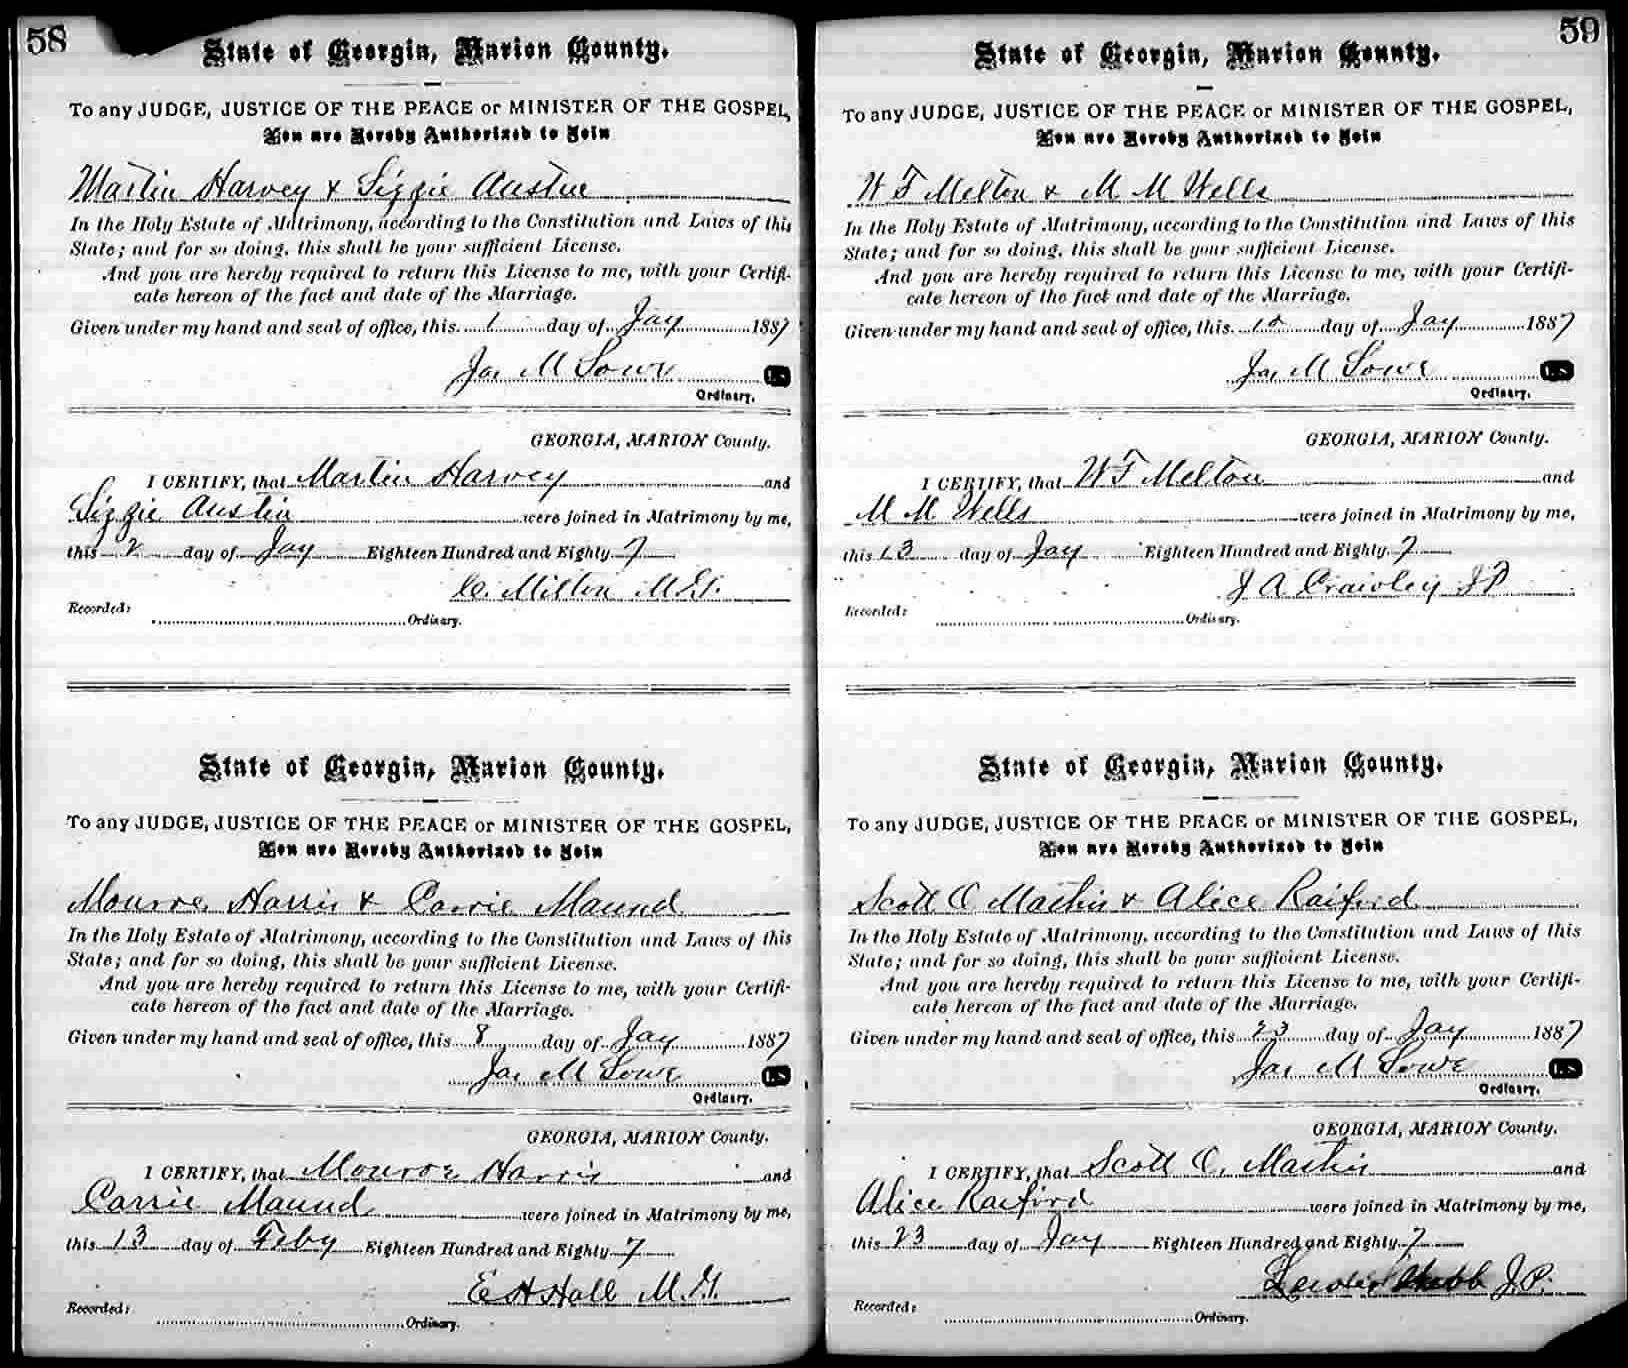 58
State of Georgia, Marion County.
To any JUDGE, JUSTICE OF THE PEACE or MINISTER OF THE GOSPEL,
You are Hereby Authorized to Join
Martin Harvey & Lizzie Austin
In the Holy Estate of Matrimony, according to the Constitution and Laws of this
State; and for so doing, this shall be your sufficient License.
And you are hereby required to return this License to me, with your Certifi-
cate hereon of the fact and date of the Marriage.
Given under my hand and seal of office, this 1 day of Jay 1887
Jas M Lowe L.S
Ordinary.
GEORGIA, MARION County.
I CERTIFY, that Martin Harvey and
Lizzie Austin were joined in Matrimony by me,
this 2 day of Jay Eighteen Hundred and Eighty 7
C. Milton M.G.
Recorded:
Ordinary.
State of Georgia, Marion County.
To any JUDGE, JUSTICE OF THE PEACE or MINISTER OF THE GOSPEL,
You are Hereby Authorized to Join
Monroe Harris & Carrie Maund
In the Holy Estate of Matrimony, according to the Constitution and Laws of this
State; and for so doing, this shall be your sufficient License.
And you are hereby required to return this License to me, with your Certifi-
cate hereon of the fact and date of the Marriage.
Given under my hand and seal of office, this 8 day of Jay 1887
Jas M Lowe L.S
Ordinary.
GEORGIA, MARION County.
I CERTIFY, that Monroe Harris and
Carrie Maund were joined in Matrimony by me,
this 13 day of Feby Eighteen Hundred and Eighty 7
E H Hall M.G.
Recorded:
Ordinary.
59
State of Georgia, Marion County.
To any JUDGE, JUSTICE OF THE PEACE or MINISTER OF THE GOSPEL,
You are Hereby Authorized to Join
W F Melton & M M Wells
In the Holy Estate of Matrimony, according to the Constitution and Laws of this
State; and for so doing, this shall be your sufficient License.
And you are hereby required to return this License to me, with your Certifi-
cate hereon of the fact and date of the Marriage.
Given under my hand and seal of office, this day of Jay 1887
Jas M Lowe L.S
Ordinary.
GEORGIA, MARION County.
I CERTIFY, that W F Melton and
M M Wells were joined in Matrimony by me,
this 13 day of Jay Eighteen Hundred and Eighty 7
J A Crawley J P
Recorded:
Ordinary.
State of Georgia, Marion County.
To any JUDGE, JUSTICE OF THE PEACE or MINISTER OF THE GOSPEL,
You are Hereby Authorized to Join
Scott C Mathis & Alice Raiford
In the Holy Estate of Matrimony, according to the Constitution and Laws of this
State; and for so doing, this shall be your sufficient License.
And you are hereby required to return this License to me, with your Certifi-
cate hereon of the fact and date of the Marriage.
Given under my hand and seal of office, this 23 day of Jay 1887
Jas M Lowe L.S
Ordinary.
GEORGIA, MARION County.
I CERTIFY, that Scott C. Mathis and
Alice Raiford were joined in Matrimony by me,
this 23 day of Jay Eighteen Hundred and Eighty 7
J.P.
Recorded:
Ordinary.